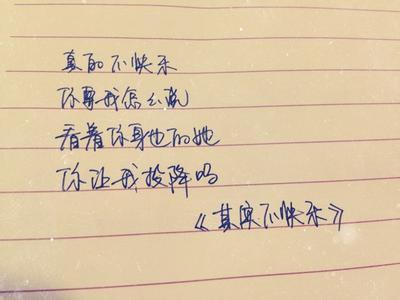 真的不快乐
你要我怎么说
看着你身边的她
你让我投降吗
《其实不快乐》